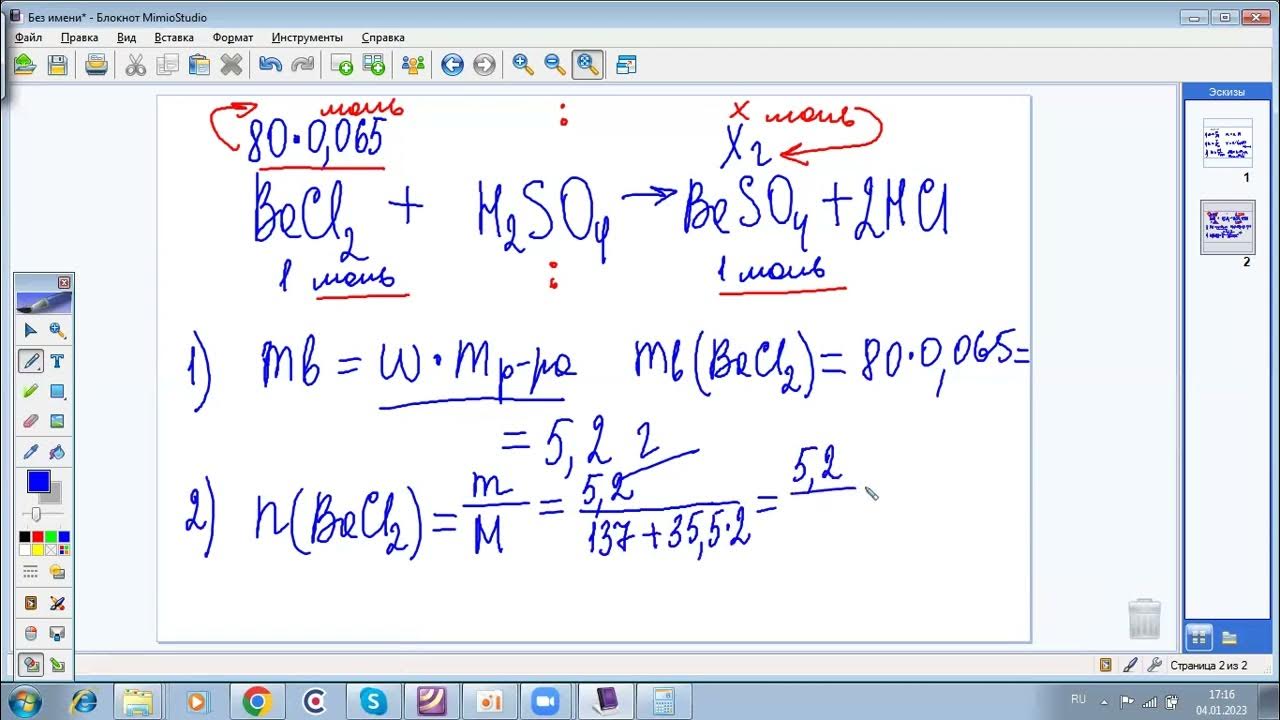 Без имени* - Блокнот MimioStudio
Файл Правка Вид Вставка Формат Инструменты Справка
Эскизы
1
2
моль : x моль
80·0,065 X г
BaCl2 + H2SO4 → BaSO4 + 2HCl
1 моль : 1 моль
1) mв = ω·mр-ра mв(BaCl2) = 80·0,065=
= 5,2 г
2) n(BaCl2) = m/M = 5,2/137+35,5·2 = 5,2
T
Страница 2 из 2
RU 17:16
04.01.2023